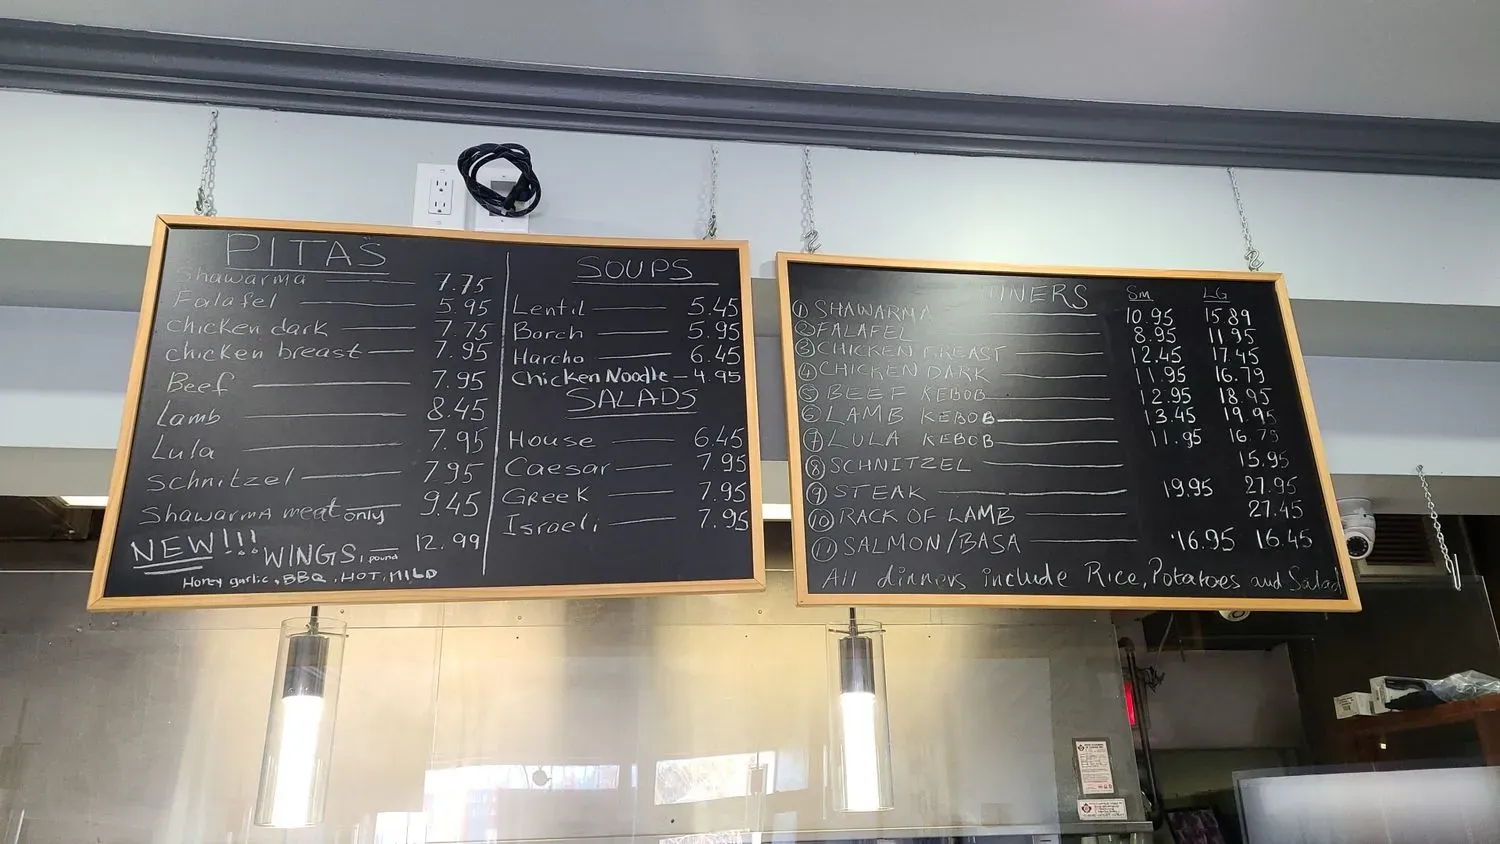 PITAS
Shawarma 7.75
Falafel 5.95
chicken dark 7.75
chicken breast 7.95
Beef 7.95
Lamb 8.45
Lula 7.95
Schnitzel 7.95
Shawarma meat only 9.45
NEW!!! WINGS, pound 12.99
Honey garlic, BBQ, HOT, MILD
SOUPS
Lentil 5.45
Borch 5.95
Harcho 6.45
Chicken Noodle 4.95
SALADS
House 6.45
Caesar 7.95
Greek 7.95
Israeli 7.95
INNERS Sm LG
1 SHAWARMA 10.95 15.89
2 FALAFEL 8.95 11.95
3 CHICKEN BREAST 12.45 17.45
4 CHICKEN DARK 11.95 16.79
5 BEEF KEBOB 12.95 18.95
6 LAMB KEBOB 13.45 19.95
7 LULA KEBOB 11.95 16.75
8 SCHNITZEL 15.95
9 STEAK 19.95 27.95
10 RACK OF LAMB 27.45
11 SALMON/BASA 16.95 16.45
All dinners include Rice, Potatoes and Salad